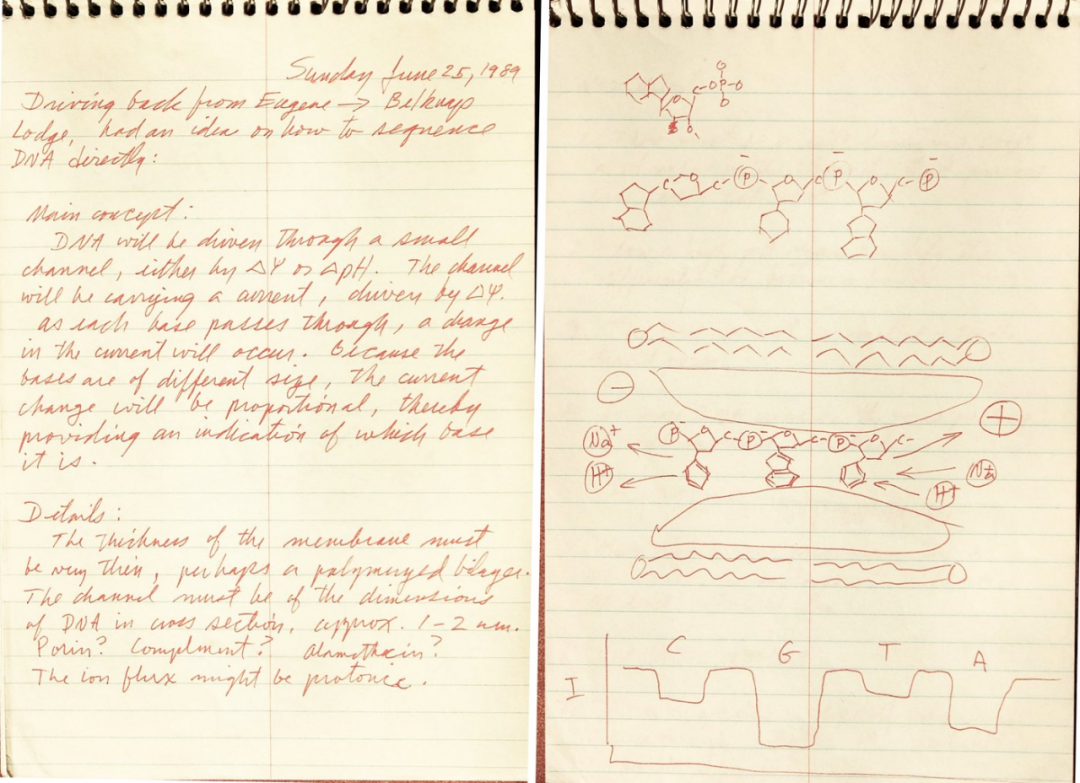 Sunday June 25, 1989
Driving back from Eugene → Belknap
Lodge, had an idea on how to sequence
DNA directly:
Main concept:
DNA will be driven through a small
channel, either by ΔΨ or ΔpH. The channel
will be carrying a current, driven by ΔΨ.
As each base passes through, a change
in the current will occur. Because the
bases are of different size, the current
change will be proportional, thereby
providing an indication of which base
it is.
Details:
The thickness of the membrane must
be very thin, perhaps a polymerized bilayer.
The channel must be of the dimensions
of DNA in cross section, approx. 1-2 nm.
Porin? Complment? Alamethacin?
The ion flux might be protonic.
O
O O P-O
O
O
O
O C- P O C P O C- P
C
- +
Na+ P O C- P O C- P O C-
H+ Na+
H+
C G T A
I